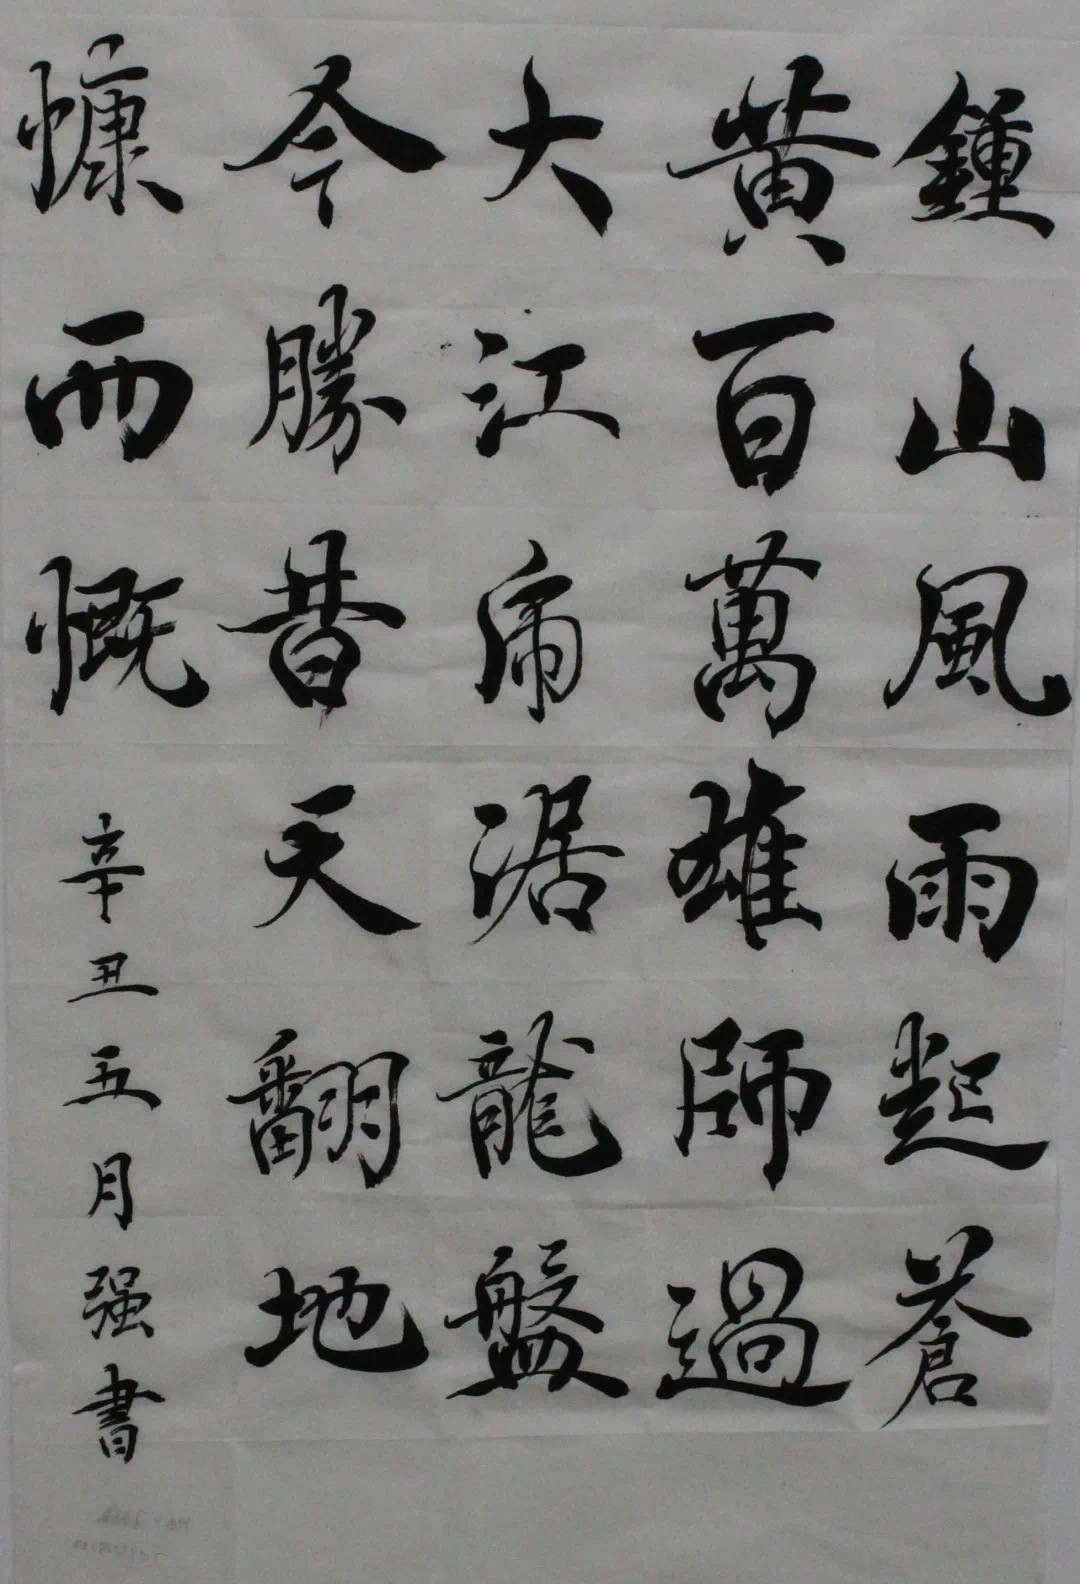 鍾山風雨起蒼
黄百萬雄師過
大江虎踞龍盤
今勝昔天翻地
慷而慨
辛丑五月强書